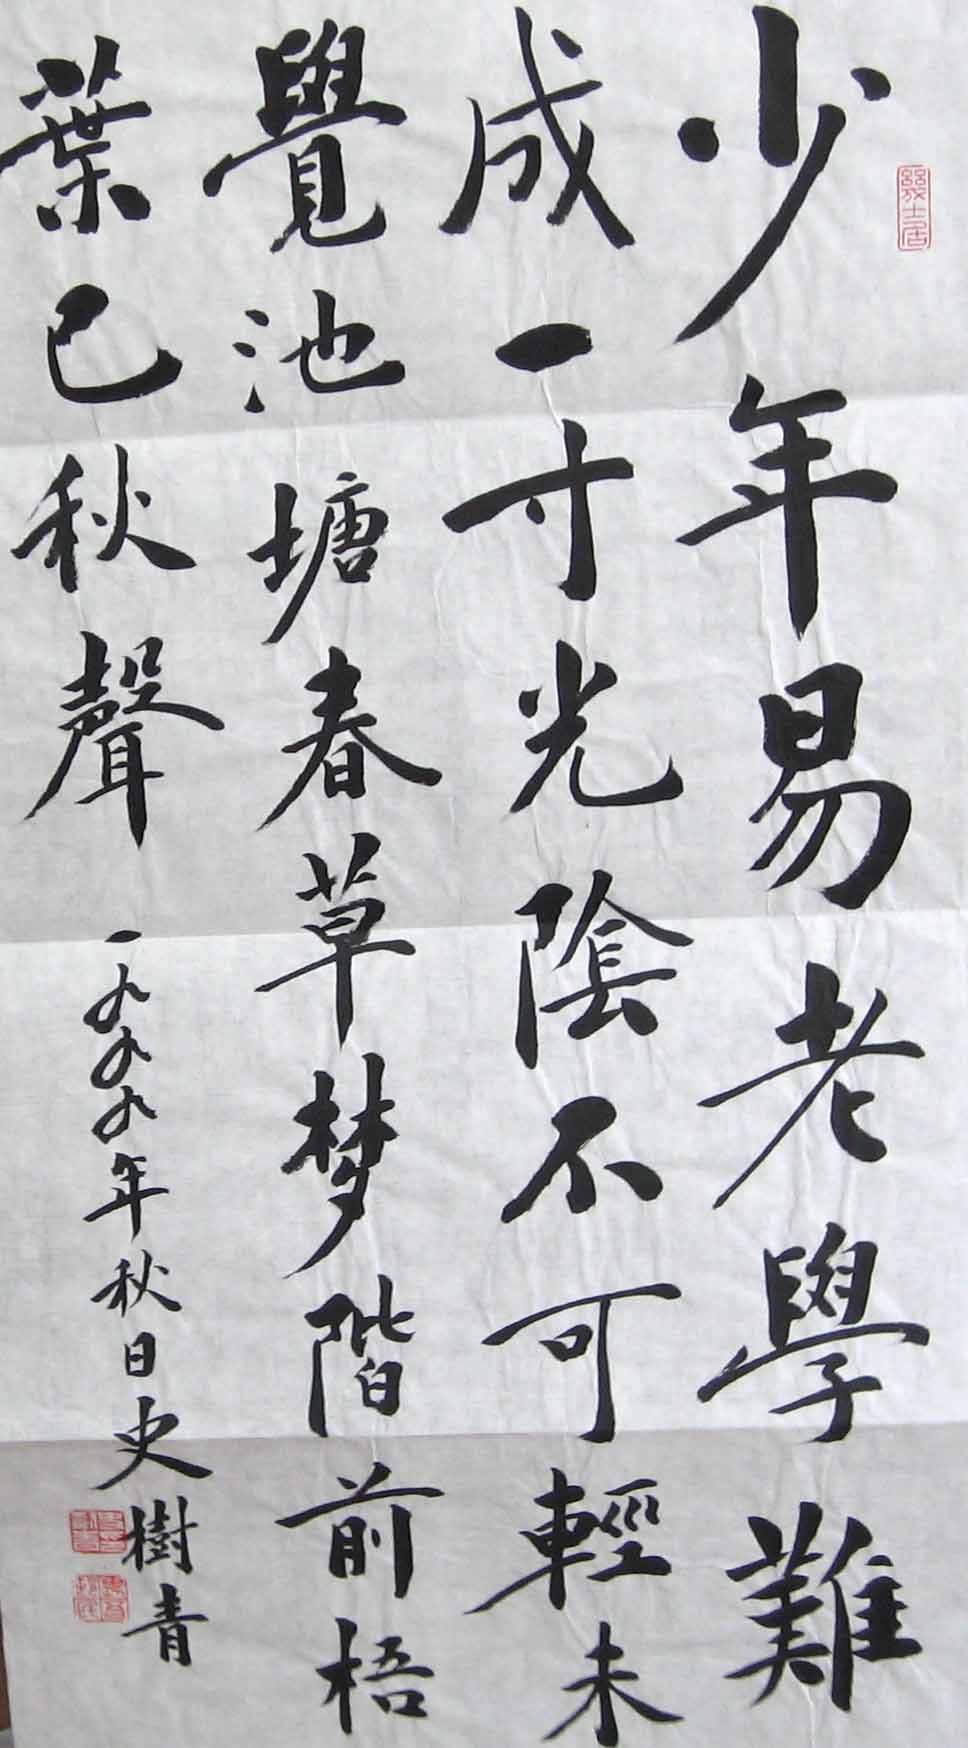 少年易老學難
成一寸光陰不可輕未
覺池塘春草梦階前梧
葉已秋聲
一九九九年秋日史樹青